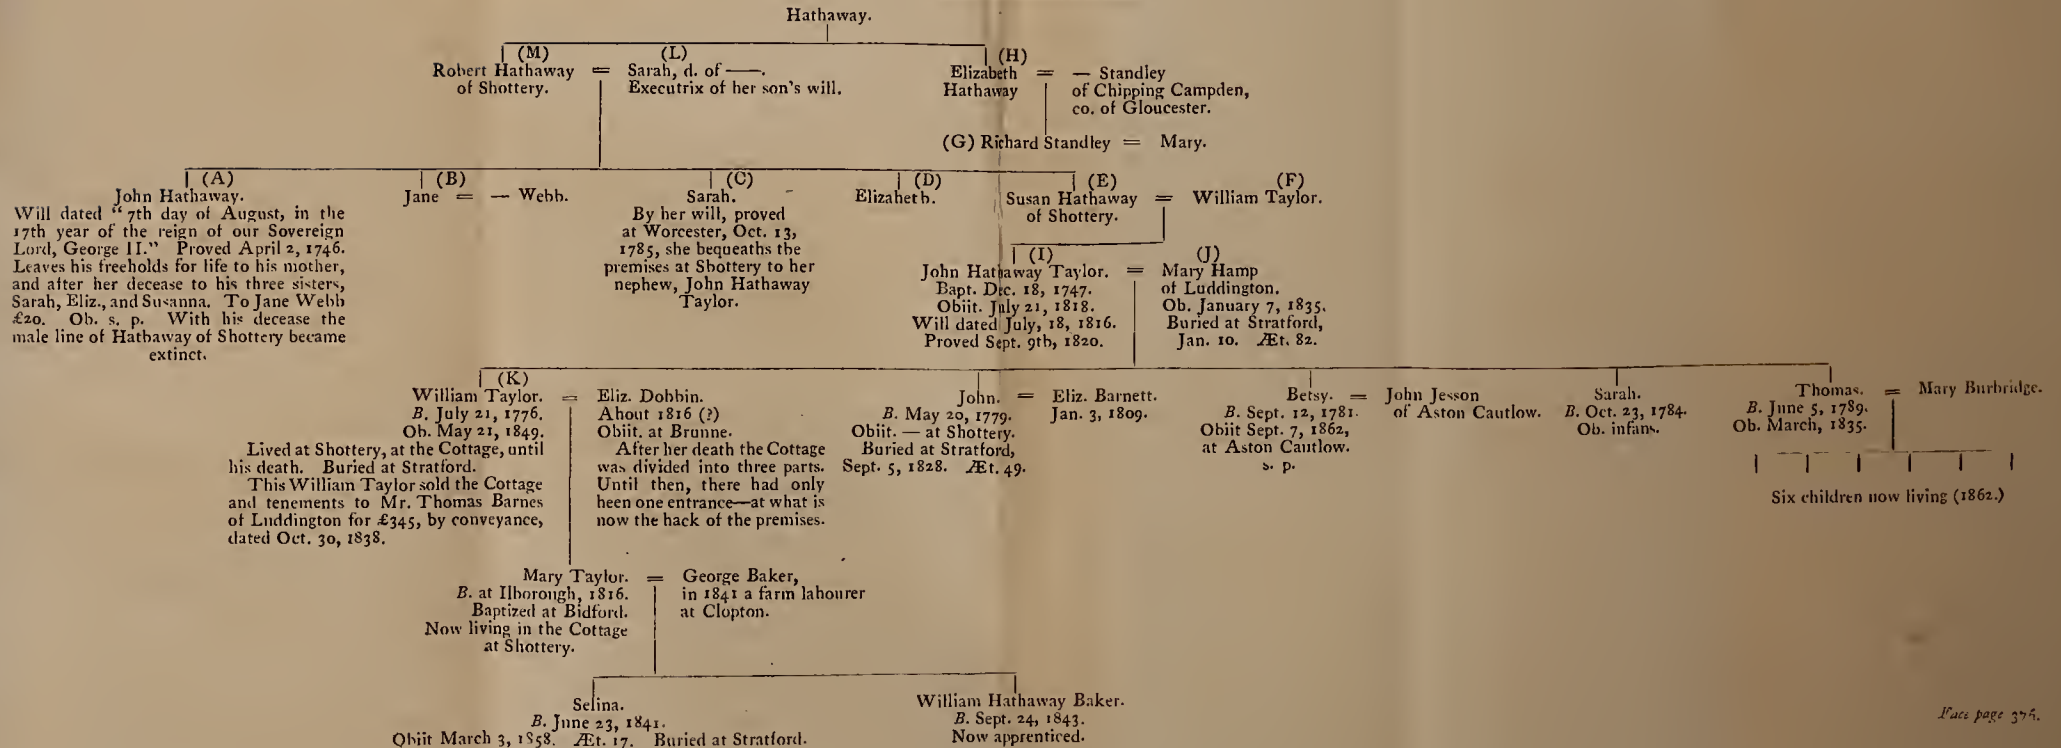 Hathaway.
(M)
Robert Hathaway =
of Shottery.
(L)
Sarah, d. of ——.
Executrix of her son's will.
(H)
Elizabeth =
Hathaway
— Standley
of Chipping Campden,
co. of Gloucester.
(G) Richard Standley = Mary.
(A)
John Hathaway.
Will dated "7th day of August, in the
17th year of the reign of our Sovereign
Lord, George II." Proved April 2, 1746.
Leaves his freeholds for life to his mother,
and after her decease to his three sisters,
Sarah, Eliz., and Susanna. To Jane Webb
£20. Ob. s. p. With his decease the
male line of Hathaway of Shottery became
extinct.
(B)
Jane = — Webb.
(C)
Sarah.
By her will, proved
at Worcester, Oct. 13,
1785, she bequeaths the
premises at Shottery to her
nephew, John Hathaway
Taylor.
(D)
Elizabeth.
(E)
Susan Hathaway =
of Shottery.
(F)
William Taylor.
(I)
John Hathaway Taylor. =
Bapt. Dec. 18, 1747.
Obiit. July 21, 1818.
Will dated July, 18, 1816.
Proved Sept. 9th, 1820.
(J)
Mary Hamp
of Luddington.
Ob. January 7, 1835.
Buried at Stratford,
Jan. 10. Æt. 82.
(K)
William Taylor. =
B. July 21, 1776.
Ob. May 21, 1849.
Lived at Shottery, at the Cottage, until
his death. Buried at Stratford.
This William Taylor sold the Cottage
and tenements to Mr. Thomas Barnes
of Luddington for £345, by conveyance,
dated Oct. 30, 1838.
Eliz. Dobbin.
About 1816 (?)
Obiit. at Brunne.
After her death the Cottage
was divided into three parts.
Until then, there had only
been one entrance—at what is
now the back of the premises.
John. =
B. May 20, 1779.
Obiit. — at Shottery.
Buried at Stratford,
Sept. 5, 1828. Æt. 49.
Eliz. Barnett.
Jan. 3, 1809.
Betsy. =
B. Sept. 12, 1781.
Obiit Sept. 7, 1862,
at Aston Cantlow.
s. p.
John Jesson
of Aston Cantlow.
Sarah.
B. Oct. 23, 1784.
Ob. infans.
Thomas. =
B. June 5, 1789.
Ob. March, 1835.
Mary Burbridge.
Six children now living (1862.)
Mary Taylor. =
B. at Ilborough, 1816.
Baptized at Bidford.
Now living in the Cottage
at Shottery.
George Baker,
in 1841 a farm labourer
at Clopton.
Selina.
B. June 23, 1841.
Obiit March 3, 1858. Æt. 17. Buried at Stratford.
William Hathaway Baker.
B. Sept. 24, 1843.
Now apprenticed.
Face page